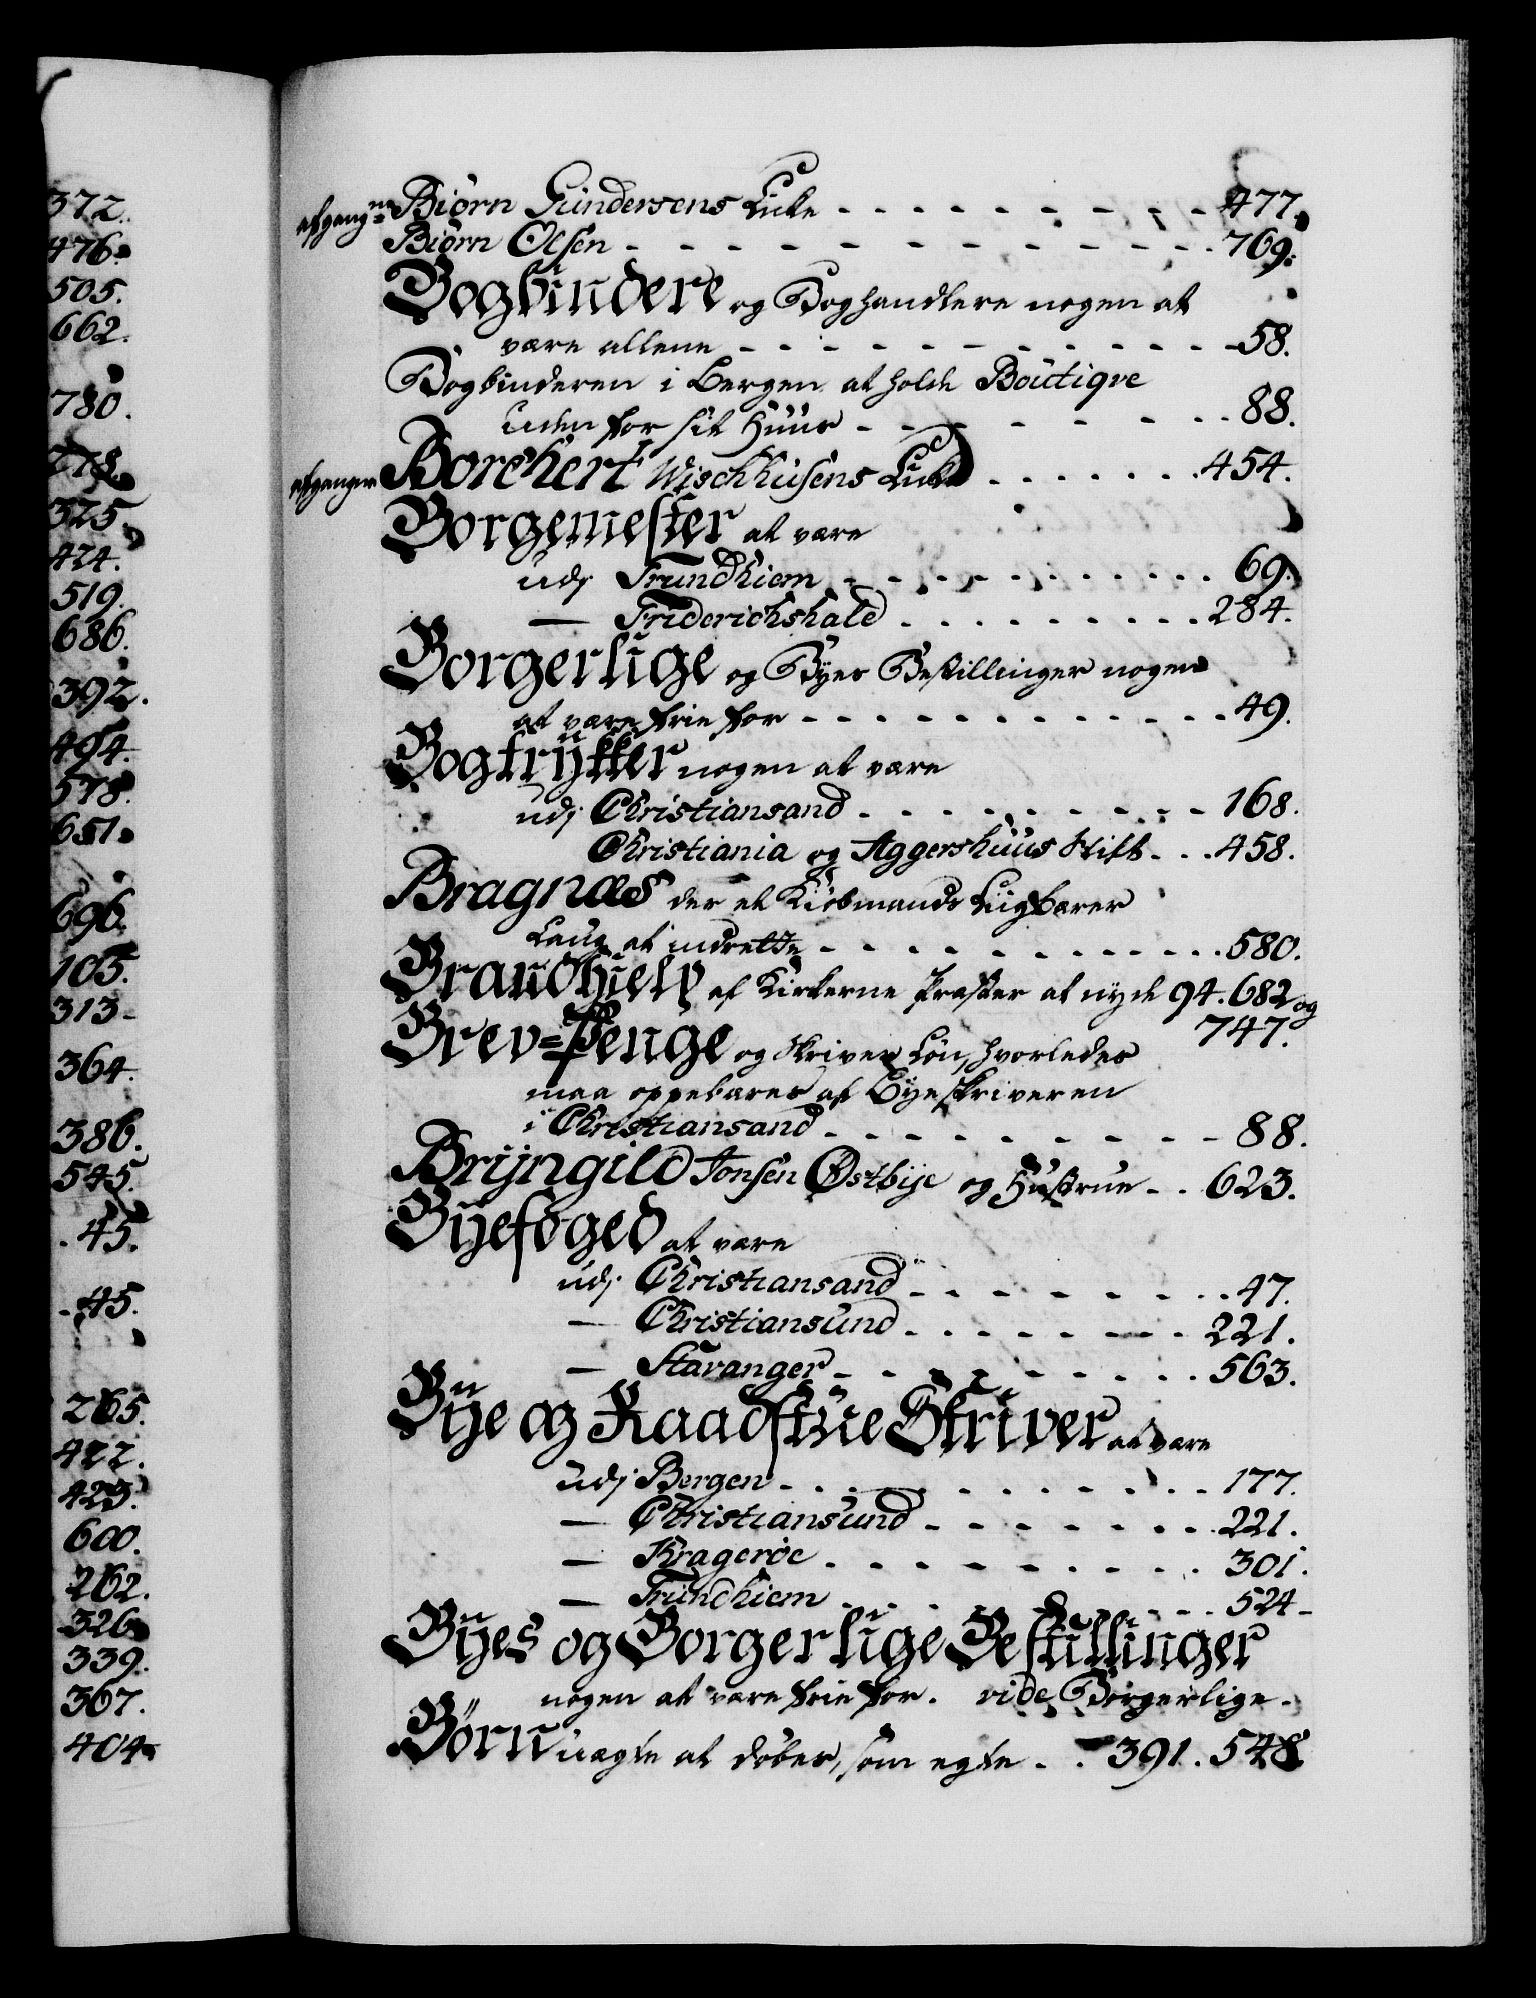 372.
476.
505.
662.
780.
778.
325.
424.
519.
686.
392.
494.
578.
651.
696.
103.
313-
364.
386.
545.
. 45.
- 45.
265.
422.
423.
600.
262.
326.
339.
367.
404.
afgangne Biørn Gundersens Encke - - - - - - - - - 477.
Biørn Olsen - - - - - - - - - - - 769.
Bogbindere og Boghandlere nogen at
være allene - - - - - - - - - - - 58.
Bogbinderen i Bergen at holde Boutiqve
uden for sit Huus - - - - - - - - 88.
afgangen Borchert Wischhusens Encke . . . . . . 454.
Borgemester at være
udj Trundhiem - - - - - - - - - - 69.
— Friderichshald . . . . . . . . . 284.
Borgerlige og Byes Bestillinger nogen
at være frie for - - - - - - - - - - - 49.
Bogtrÿkker nogen at være
udj Christiansand - - - - - - - - - 168.
Christiania og Aggershuus Stift - - - 458.
Bragnæs der et Kiøbmands Liigbærer
Laug at indrette - - - - - - - - - - 580.
Brandhielp af Kirkerne Præster at nyde 94. 682 og
747.
Brev=Penge og Skriver Løn, hvorledes
maa oppebæres af Byeskriveren
i Christiansand - - - - - - - - - - 88.
Brÿngild Jonsen Østbÿe og Hustrue - - 623.
Bÿefoged at være
udj Christiansand - - - - - - - - - 47.
— Christiansund - - - - - - - 221.
— Stavanger - - - - - - - - - 563.
Bÿe og Raadstue Skriver at være
udj Bergen - - - - - - - - - - - 177.
— Christiansund - - - - - - - 221.
— Kragerøe - - - - - - - - - 301.
— Trundhiem - - - - - - - - - 524-
Bÿes og Borgerlige Bestillinger
nogen at være frie for. vide Borgerlige.
Børn uægte at døbes, som egte . . 391. 548.